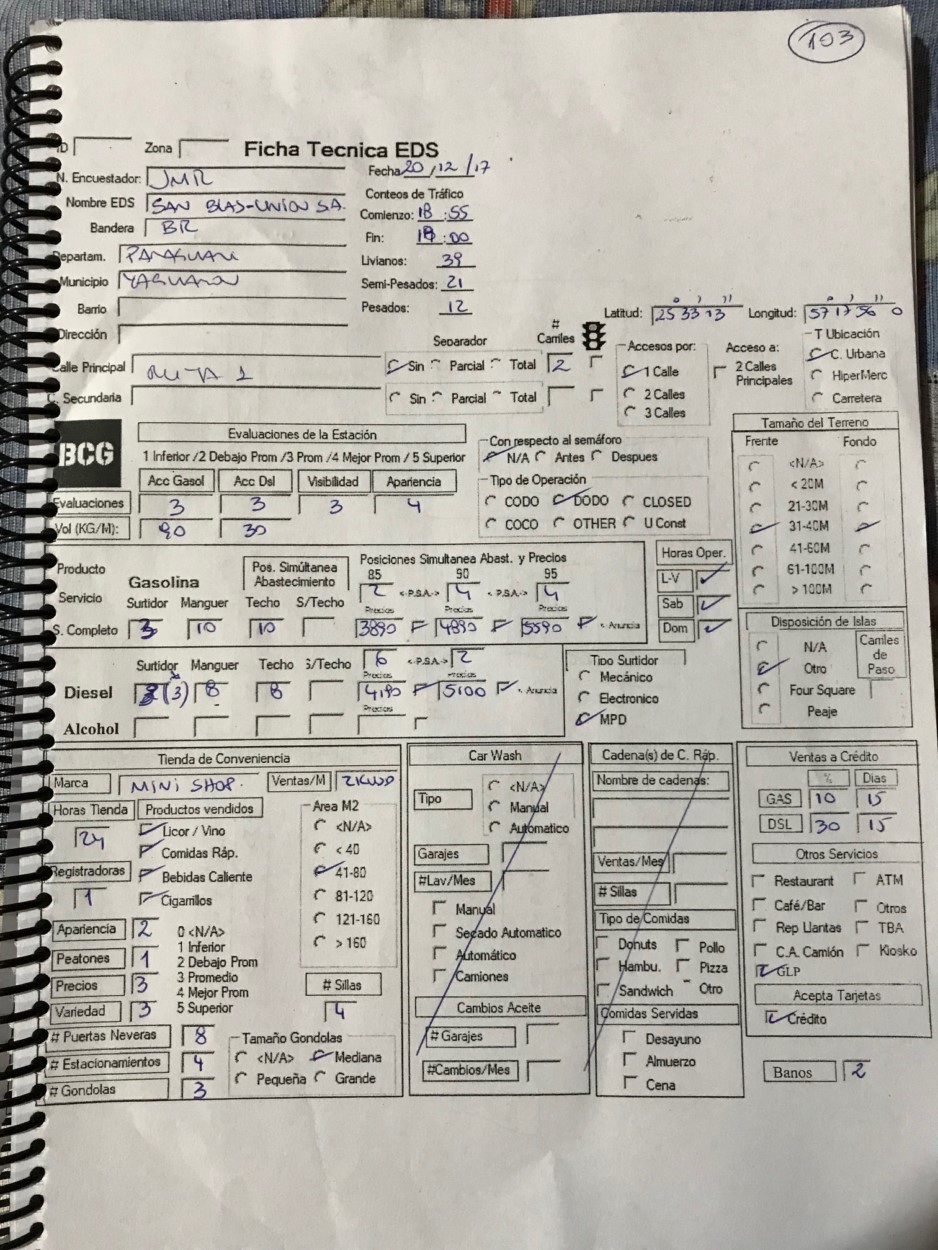 103
ID Zona Ficha Tecnica EDS
N. Encuestador: JMR Fecha 20/12/17
Nombre EDS SAN BLAS-UNION SA. Conteos de Tráfico
Bandera BR Comienzo: 18:55
Fin: :00
Departam. PARAGUARI Livianos: 39
Municipio YAGUARON Semi-Pesados: 21
Barrio Pesados: 12
Latitud: 25 33 13 Longitud: 57 17 56 0
Dirección
Separador # Carriles Accesos por: Acceso a: T Ubicación
Calle Principal RUTA 1 Sin Parcial Total 2 1 Calle 2 Calles Principales C. Urbana
2 Calles HiperMerc
C. Secundaria Sin Parcial Total 3 Calles Carretera
BCG Evaluaciones de la Estación
1 Inferior /2 Debajo Prom /3 Prom /4 Mejor Prom / 5 Superior
Con respecto al semáforo
N/A Antes Despues
Acc Gasol Acc Dsl Visibilidad Apariencia
Evaluaciones 3 3 3 4
Vol (KG/M): 90 30
Tipo de Operación
CODO DODO CLOSED
COCO OTHER U Const
Tamaño del Terreno
Frente Fondo
<N/A>
< 20M
21-30M
31-40M
41-60M
61-100M
> 100M
Producto Gasolina Pos. Simúltanea Abastecimiento Posiciones Simultanea Abast. y Precios
85 90 95
2 <-P.S.A.-> 4 <-P.S.A.-> 4
Servicio Surtidor Manguer Techo S/Techo Precios Precios Precios
S. Completo 3 10 10 3890 4890 5590 <- Anuncia
Horas Oper.
L-V
Sab
Dom
Surtidor Manguer Techo S/Techo 6 <-P.S.A.-> 2
Precios Precios
Diesel (3) 8 8 4190 5100 <- Anuncia
Alcohol Precios
Tipo Surtidor
Mecánico
Electronico
MPD
Disposición de Islas
N/A Carriles de Paso
Otro
Four Square
Peaje
Tienda de Conveniencia
Marca MINI SHOP. Ventas/M
Horas Tienda Productos vendidos Area M2
24 Licor / Vino <N/A>
Comidas Ráp. < 40
Registradoras Bebidas Caliente 41-80
1 Cigarrillos 81-120
121-160
> 160
Apariencia 2 0 <N/A>
1 Inferior
Peatones 1 2 Debajo Prom
Precios 3 3 Promedio # Sillas
4 Mejor Prom
Variedad 3 5 Superior 4
# Puertas Neveras 8 Tamaño Gondolas
# Estacionamientos 4 <N/A> Mediana
# Gondolas 3 Pequeña Grande
Car Wash
Tipo <N/A>
Manual
Automatico
Garajes
#Lav/Mes
Manual
Secado Automatico
Automático
Camiones
Cambios Aceite
# Garajes
#Cambios/Mes
Cadena(s) de C. Ráp.
Nombre de cadenas:
Ventas/Mes
# Sillas
Tipo de Comidas
Donuts Pollo
Hambu. Pizza
Sandwich Otro
Comidas Servidas
Desayuno
Almuerzo
Cena
Ventas a Crédito
% Dias
GAS 10 15
DSL 30 15
Otros Servicios
Restaurant ATM
Café/Bar Otros
Rep Llantas TBA
C.A. Camión Kiosko
GLP
Acepta Tarjetas
Crédito
Banos 2